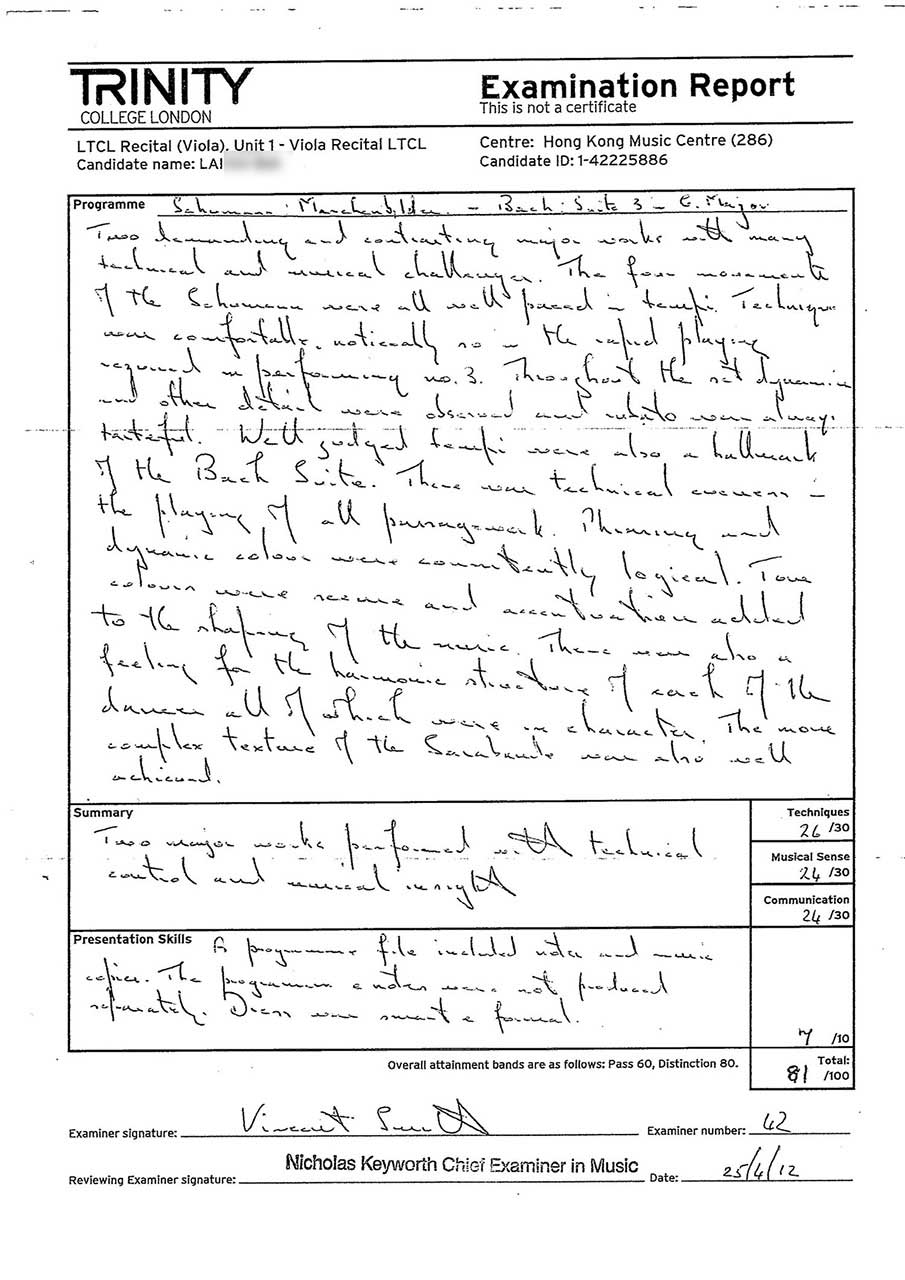 TRINITY
COLLEGE LONDON
Examination Report
This is not a certificate
LTCL Recital (Viola). Unit 1 - Viola Recital LTCL
Candidate name: LAI
Centre: Hong Kong Music Centre (286)
Candidate ID: 1-42225886
Programme Schumann: Marchenbilder - Bach: Suite 3 - C. Major
Two demanding and contrasting major works with many
technical and musical challenges. The four movements
of the Schumann were all well paced in tempi. Technique
was comfortable, noticeably so in the rapid playing
required in performing no. 3. Throughout the set dynamic
and other detail were observed and rubato was always
tasteful. Well judged tempi were also a hallmark
of the Bach Suite. There was technical evenness in
the playing of all passage-work. Phrasing and
dynamic colour were consistently logical. Tone
colours were secure and accentuation added
to the shaping of the music. There was also a
feeling for the harmonic structure of each of the
dances all of which were in character. The more
complex texture of the Sarabande was also well
achieved.
Summary
Two major works performed with technical
control and musical insight
Techniques
26 /30
Musical Sense
24 /30
Communication
24 /30
Presentation Skills A programme file included notes and music
copies. The programme & notes were not produced
separately. Dress was smart & formal.
7 /10
Overall attainment bands are as follows: Pass 60, Distinction 80.
Total:
81 /100
Examiner signature: Vincent Smith
Examiner number: 42
Nicholas Keyworth Chief Examiner in Music
Reviewing Examiner signature:
Date: 25/4/12